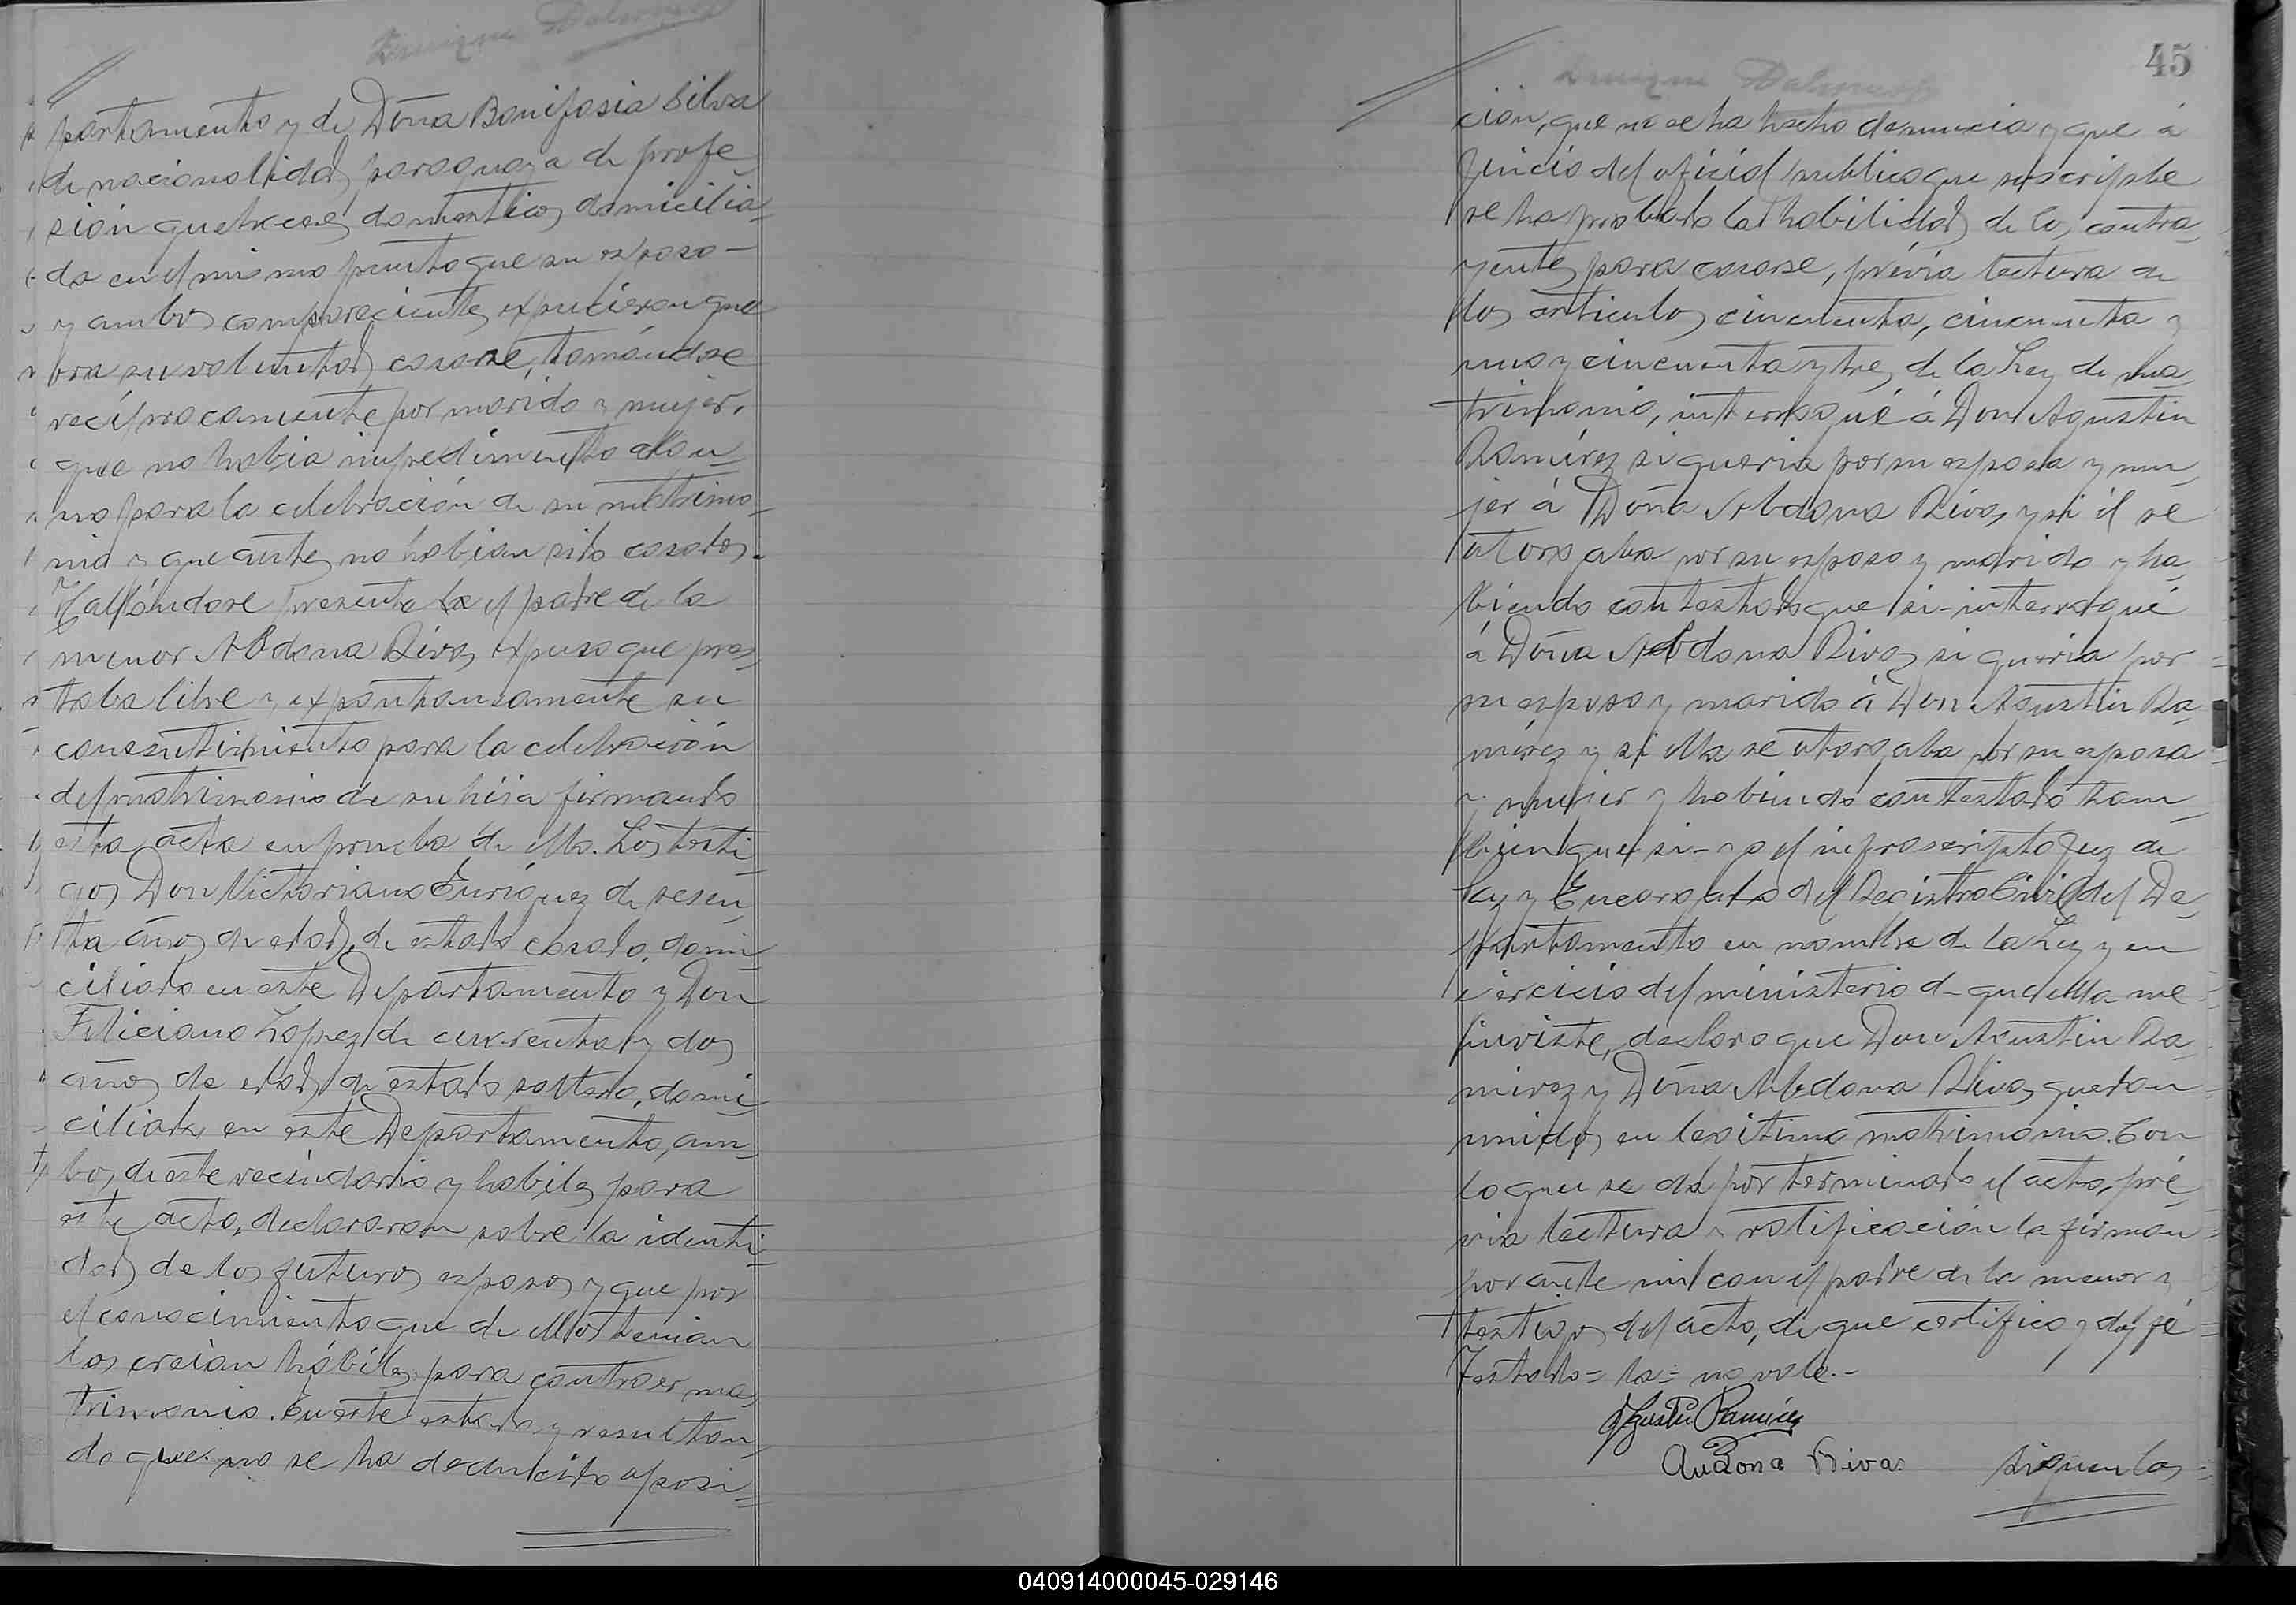 partamento y de Doña Bonifasia Silva
de nacionalidad paraguaya de profe-
sión quehaceres domesticos domicilia-
da en el mismo punto que su esposo-
y ambos comparecientes expucieron que
era su voluntad casarse, tomándose
recíprocamente por marido y mujer.
que no habia impedimento algu-
no para la celebración de su matrimo-
nio y que antes no habian sido casados.
Hallándose presente la el padre de la
menor Abdona Rivas expuso que pres-
taba libre y expontaneamente su
consentimiento para la celebración
del matrimonio de su hija firmando
esta acta en prueba de ello. Los testi-
gos Don Victoriano Enríquez de sesen-
ta años de edad, de estado casado, domi-
ciliado en este Departamento y Don
Feliciano Lopez de cuarenta y dos
años de edad de estado soltero, domi-
ciliado en este Departamento, am-
bos de este vecindario y habiles para
este acto, declararon sobre la identi-
dad de los futuros esposos y que por
el conocimiento que de ellos tenian
los creian hábiles para contraer ma-
trimonio. En este estado y resultan-
do que no se ha deducido oposi-
45
ción, que no se ha hecho denuncia y que á
juicio del oficial publico que suscripbe
se ha probado la habilidad de los contra-
yentes para casarse, prévia lectura de
los articulos cincuenta, cincuenta y
uno y cincuenta y tres de la Ley de Ma-
trimonio, interrogué á Don Agustin
Ramírez si queria por su esposa y mu-
jer á Doña Abdona Rivas y si él se
otorgaba por su esposo y marido y ha-
biendo contestado que si-interrogué
á Doña Abdona Rivas si queria por
su esposo y marido á Don Agustin Ra-
mírez y si ella se otorgaba por su esposa
y mujer y habiendo contestado tam-
bien que si-yo el infrascripto Juez de
Paz y Encargado del Registro Civil del De-
partamento en nombre de la Ley y en
ejercicio del ministerio de que ella me
inviste, declaro que Don Agustin Ra-
mirez y Doña Abdona Rivas quedan
unidos en legitimo matrimonio. Con
lo que se da por terminado el acto, pré-
via lectura y ratificación la firman
por ante mi con el padre de la menor y
testigos del acto, de que certifico y doy fé
Testado= la= no vale.-
Agustin Ramirez
Audona Rivas siguen las
040914000045-029146